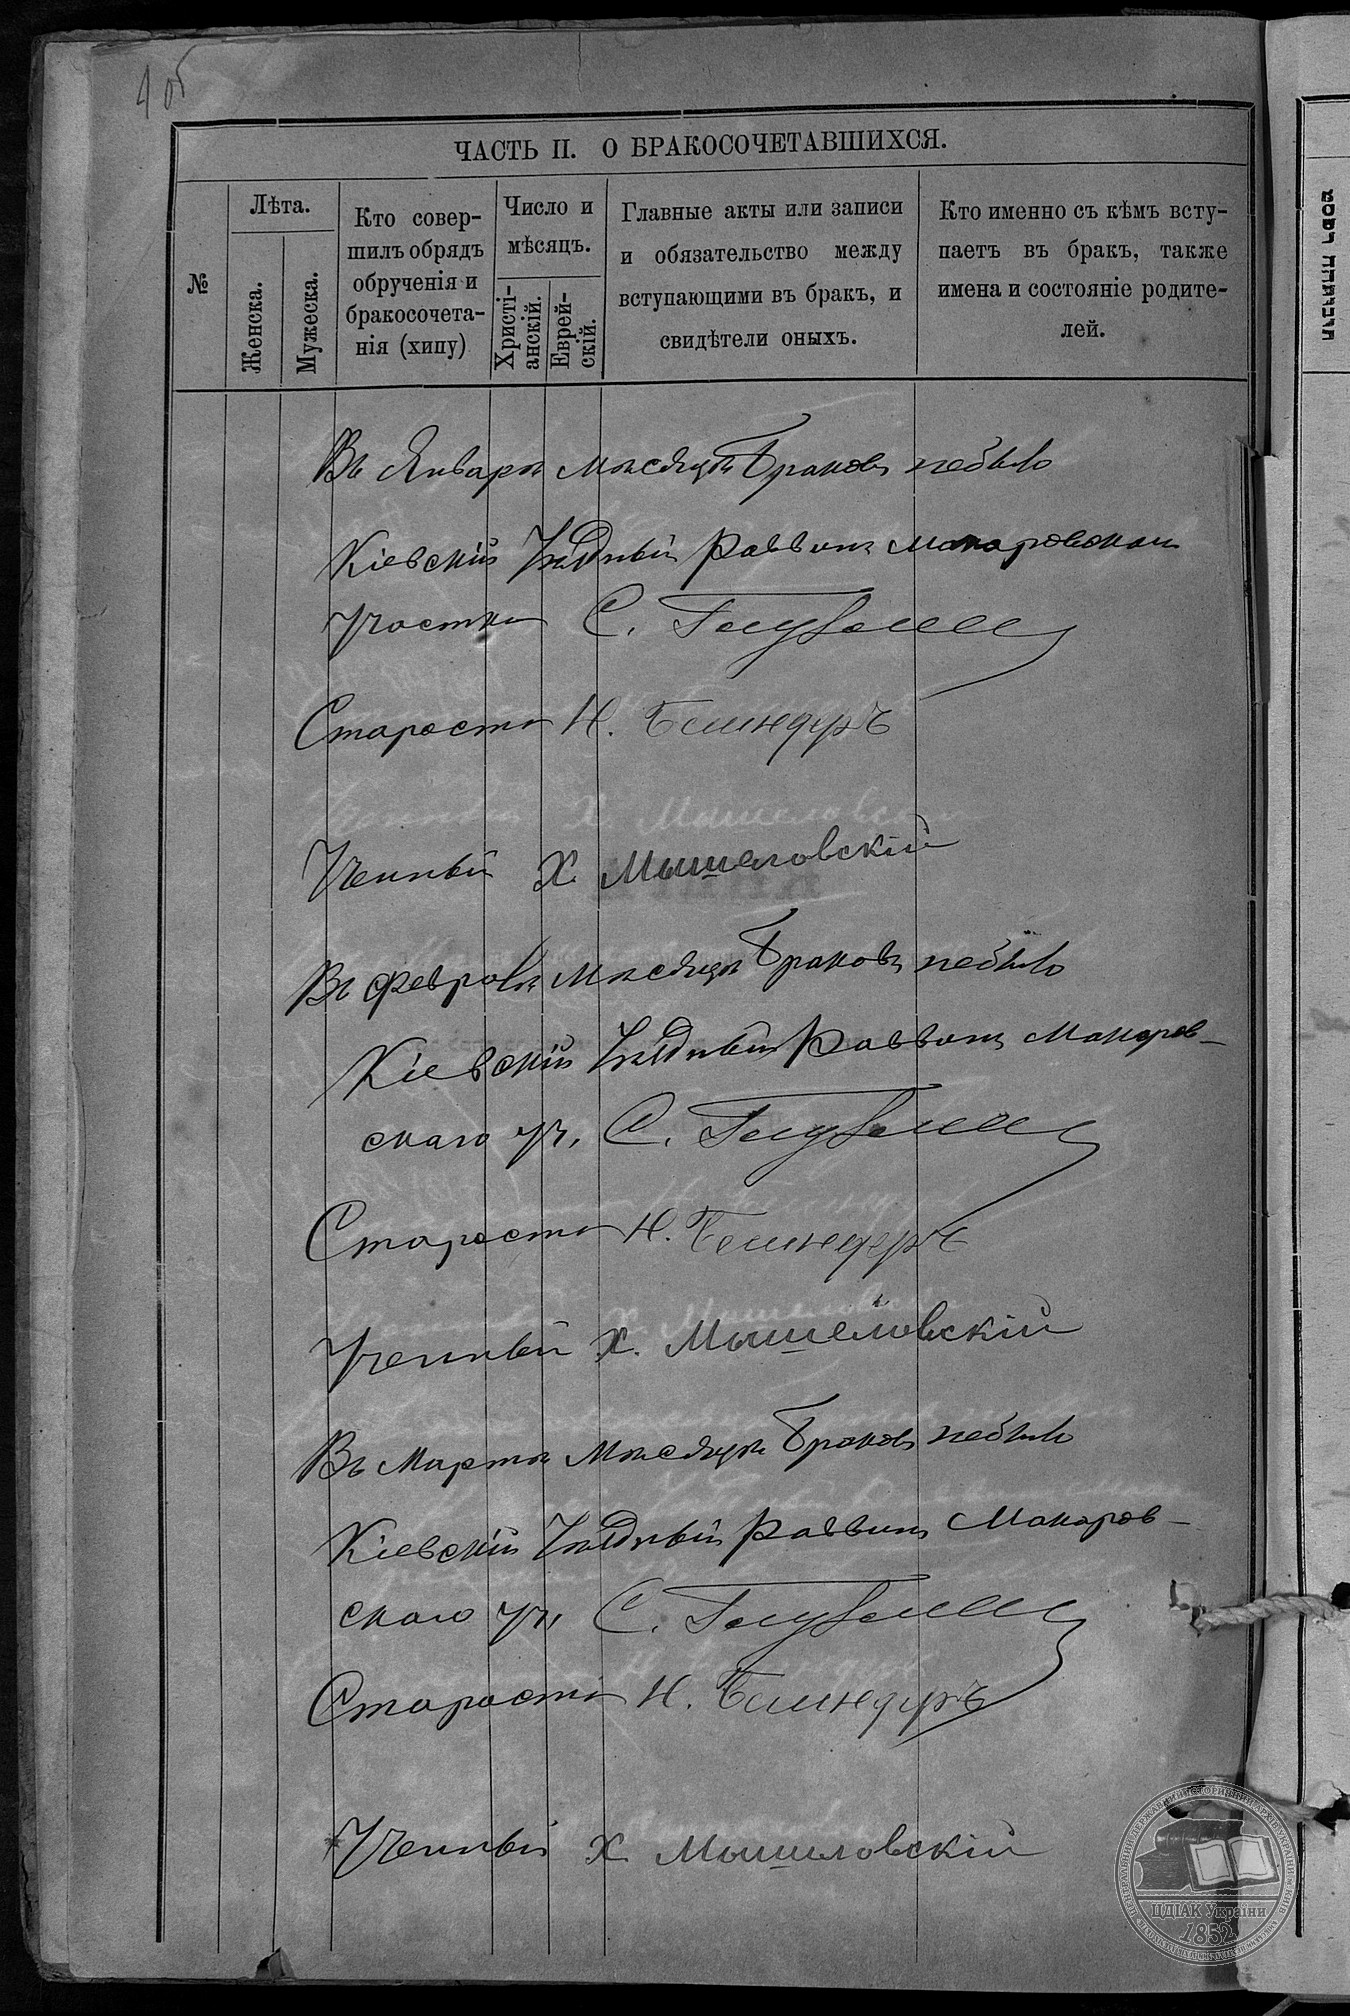 4 об
ЧАСТЬ II. О БРАКОСОЧЕТАВШИХСЯ.
№
Лѣта.
Женска.
Мужеска.
Кто совер-
шилъ обрядъ
обрученія и
бракосочета-
нія (хипу)
Число и
мѣсяцъ.
Христі-
анскій.
Еврей-
скій.
Главные акты или записи
и обязательство между
вступающими въ бракъ, и
свидѣтели оныхъ.
Кто именно съ кѣмъ всту-
паетъ въ бракъ, также
имена и состояніе родите-
лей.
Въ Январѣ мѣсяцѣ Браковъ небыло
Кіевскій Уѣздный Раввинъ Макаровскаго
Участка С.
Староста Н.
Ученный Х. Мышеловскій
Въ Февралѣ мѣсяцѣ Браковъ небыло
Кіевскій Уѣздный Раввинъ Макаров-
скаго уч. С.
Староста Н.
Ученный Х. Мышеловскій
Въ Мартѣ мѣсяцѣ Браковъ небыло
Кіевскій Уѣздный Раввинъ Макаров-
скаго уч. С.
Староста Н.
Ученный Х. Мышеловскій
ЦДІАК України
1852